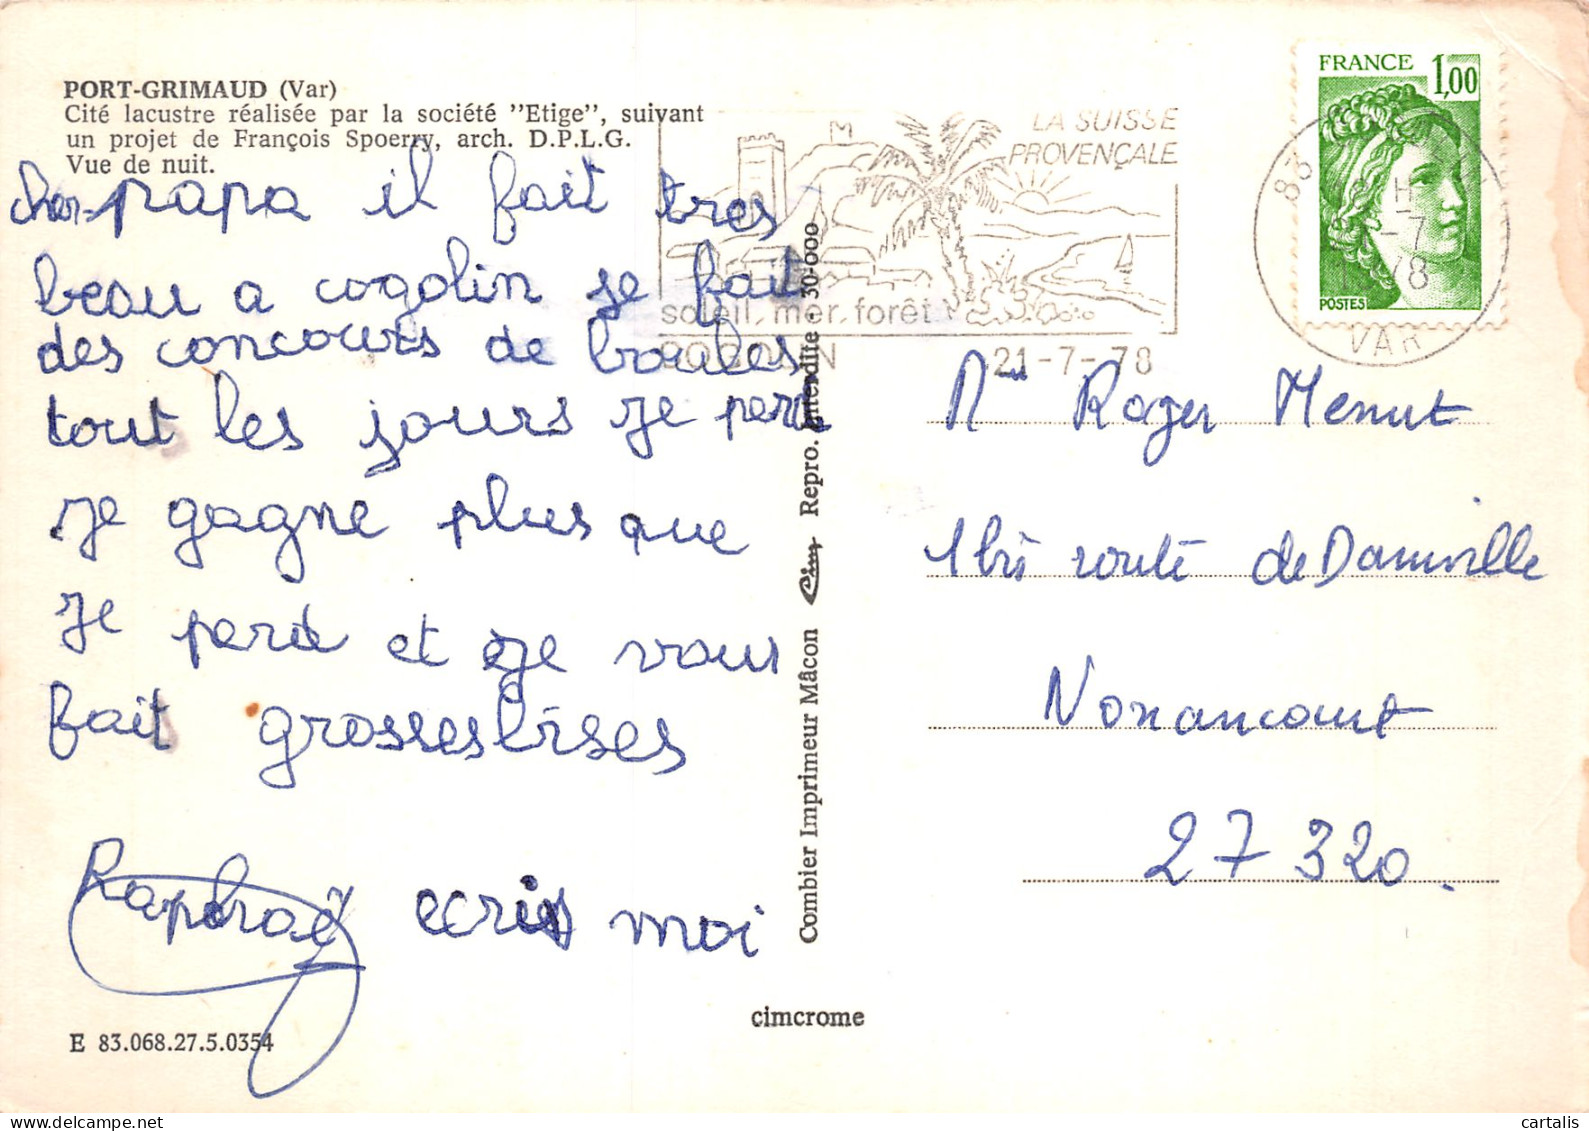 PORT-GRIMAUD (Var)
Cité lacustre réalisée par la société "Etige", suivant
un projet de François Spoerry, arch. D.P.L.G.
Vue de nuit.
cher papa il fait tres
beau a cogolin je fait
des concours de boules
tout les jours je perd
je gagne plus que
je perd et je vous
fait grosses bises
Raphaël ecris moi
E 83.068.27.5.0354
cimcrome
Combier Imprimeur Mâcon Cim Repro. interdite - 30-000
LA SUISSE
PROVENÇALE
soleil, mer, forêt
COGOLIN 21-7-78
FRANCE 1,00
POSTES
83
H
-7
1978
VAR
Mr Roger Menut
1 bis route de Damville
Nonancourt
27 320.
cartalis
www.delcampe.net